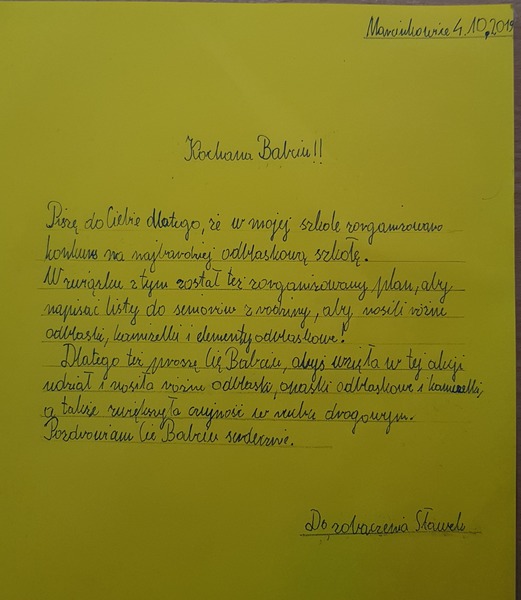 Marcinkowice 4.10.2019
Kochana Babciu!!
Piszę do Ciebie dlatego, że w mojej szkole zorganizowano
konkurs na najbardziej odblaskową szkołę.
W związku z tym został też zorganizowany plan, aby
napisać listy do seniorów z rodziny, aby nosili różne
odblaski, kamizelki i elementy odblaskowe!
Dlatego też proszę Cię Babciu, abyś wzięła w tej akcji
udział i nosiła różne odblaski, opaski odblaskowe i kamizelki,
a także zwiększyła czujność w ruchu drogowym.
Pozdrowiam Cię Babciu serdecznie.
Do zobaczenia Sławek